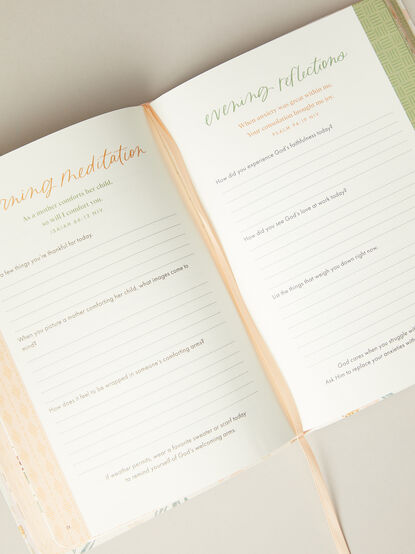 rning meditation
As a mother comforts her child,
so will I comfort you.
ISAIAH 66:13 NIV
a few things you're thankful for today.
When you picture a mother comforting her child, what images come to
mind?
How does it feel to be wrapped in someone's comforting arms?
If weather permits, wear a favorite sweater or scarf today
to remind yourself of God's welcoming arms.
evening reflections
When anxiety was great within me,
Your consolation brought me joy.
PSALM 94:19 NIV
How did you experience God's faithfulness today?
How did you see God's love at work today?
List the things that weigh you down right now.
God cares when you struggle
Ask Him to replace your anxieties